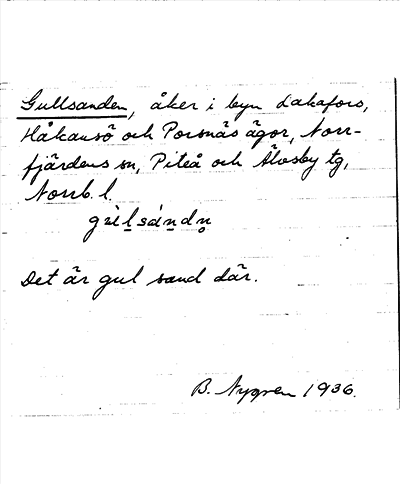 Gullsanden, åker i byn Lakafors,
Håkansö och Porsnäs ägor, Norr-
fjärdens sn, Piteå och Älvsby tg,
Norrb. l.
Det är gul sand där.
B. Nygren 1936.